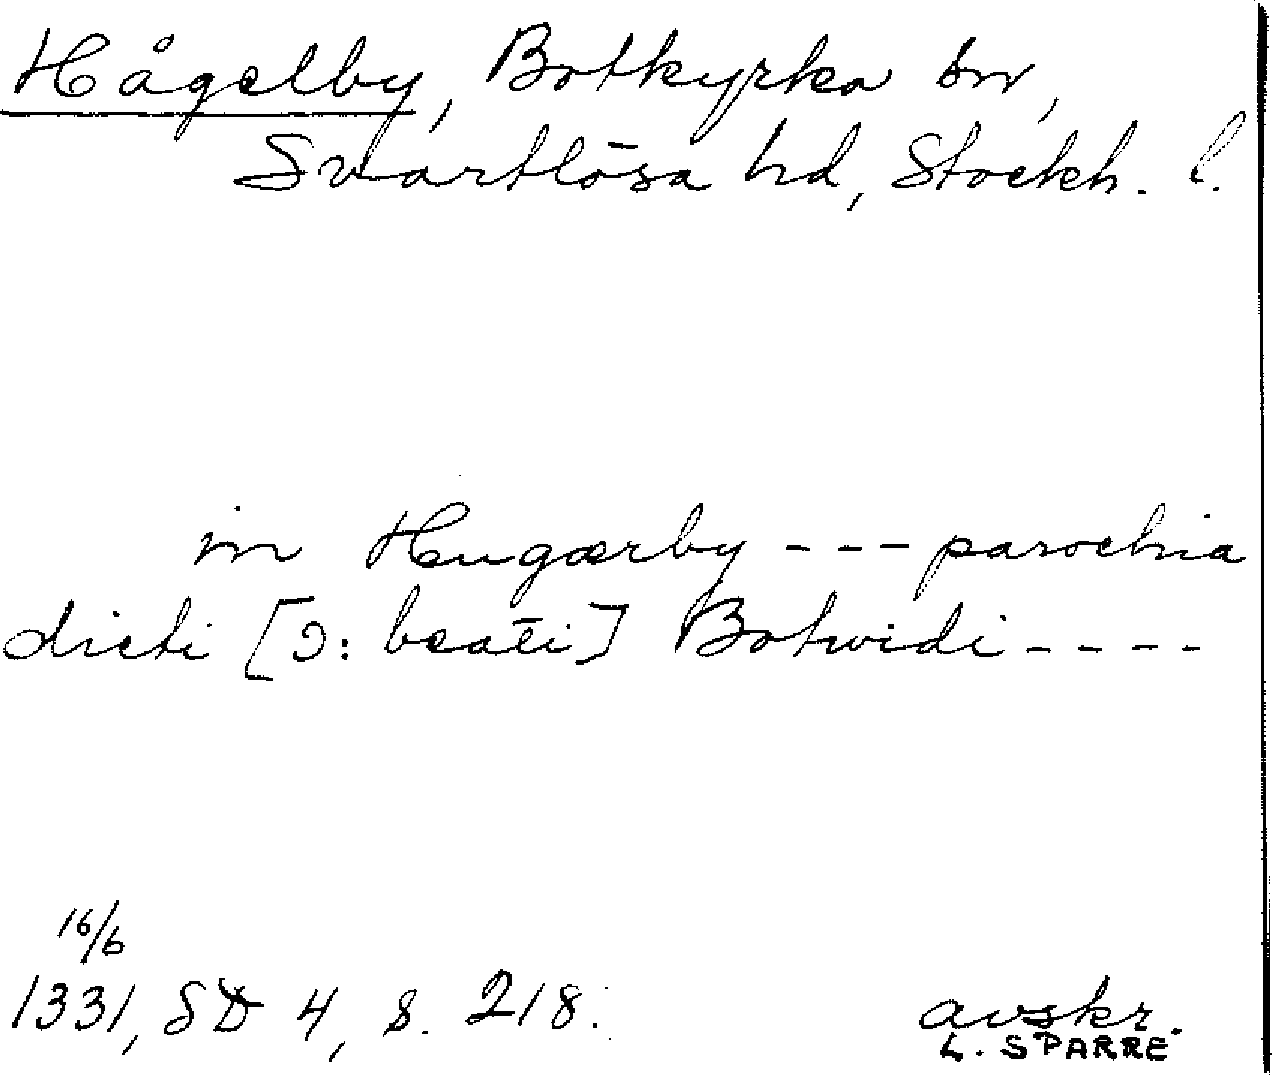 Hågelby, Botkyrka sn,
Svartlösa hd, Stockh. l.
in Hugærby --- parochia
dicti [ɔ: beati] Botwidi ----
16/6
1331, SD 4, s. 218.
avskr.
L. SPARRE